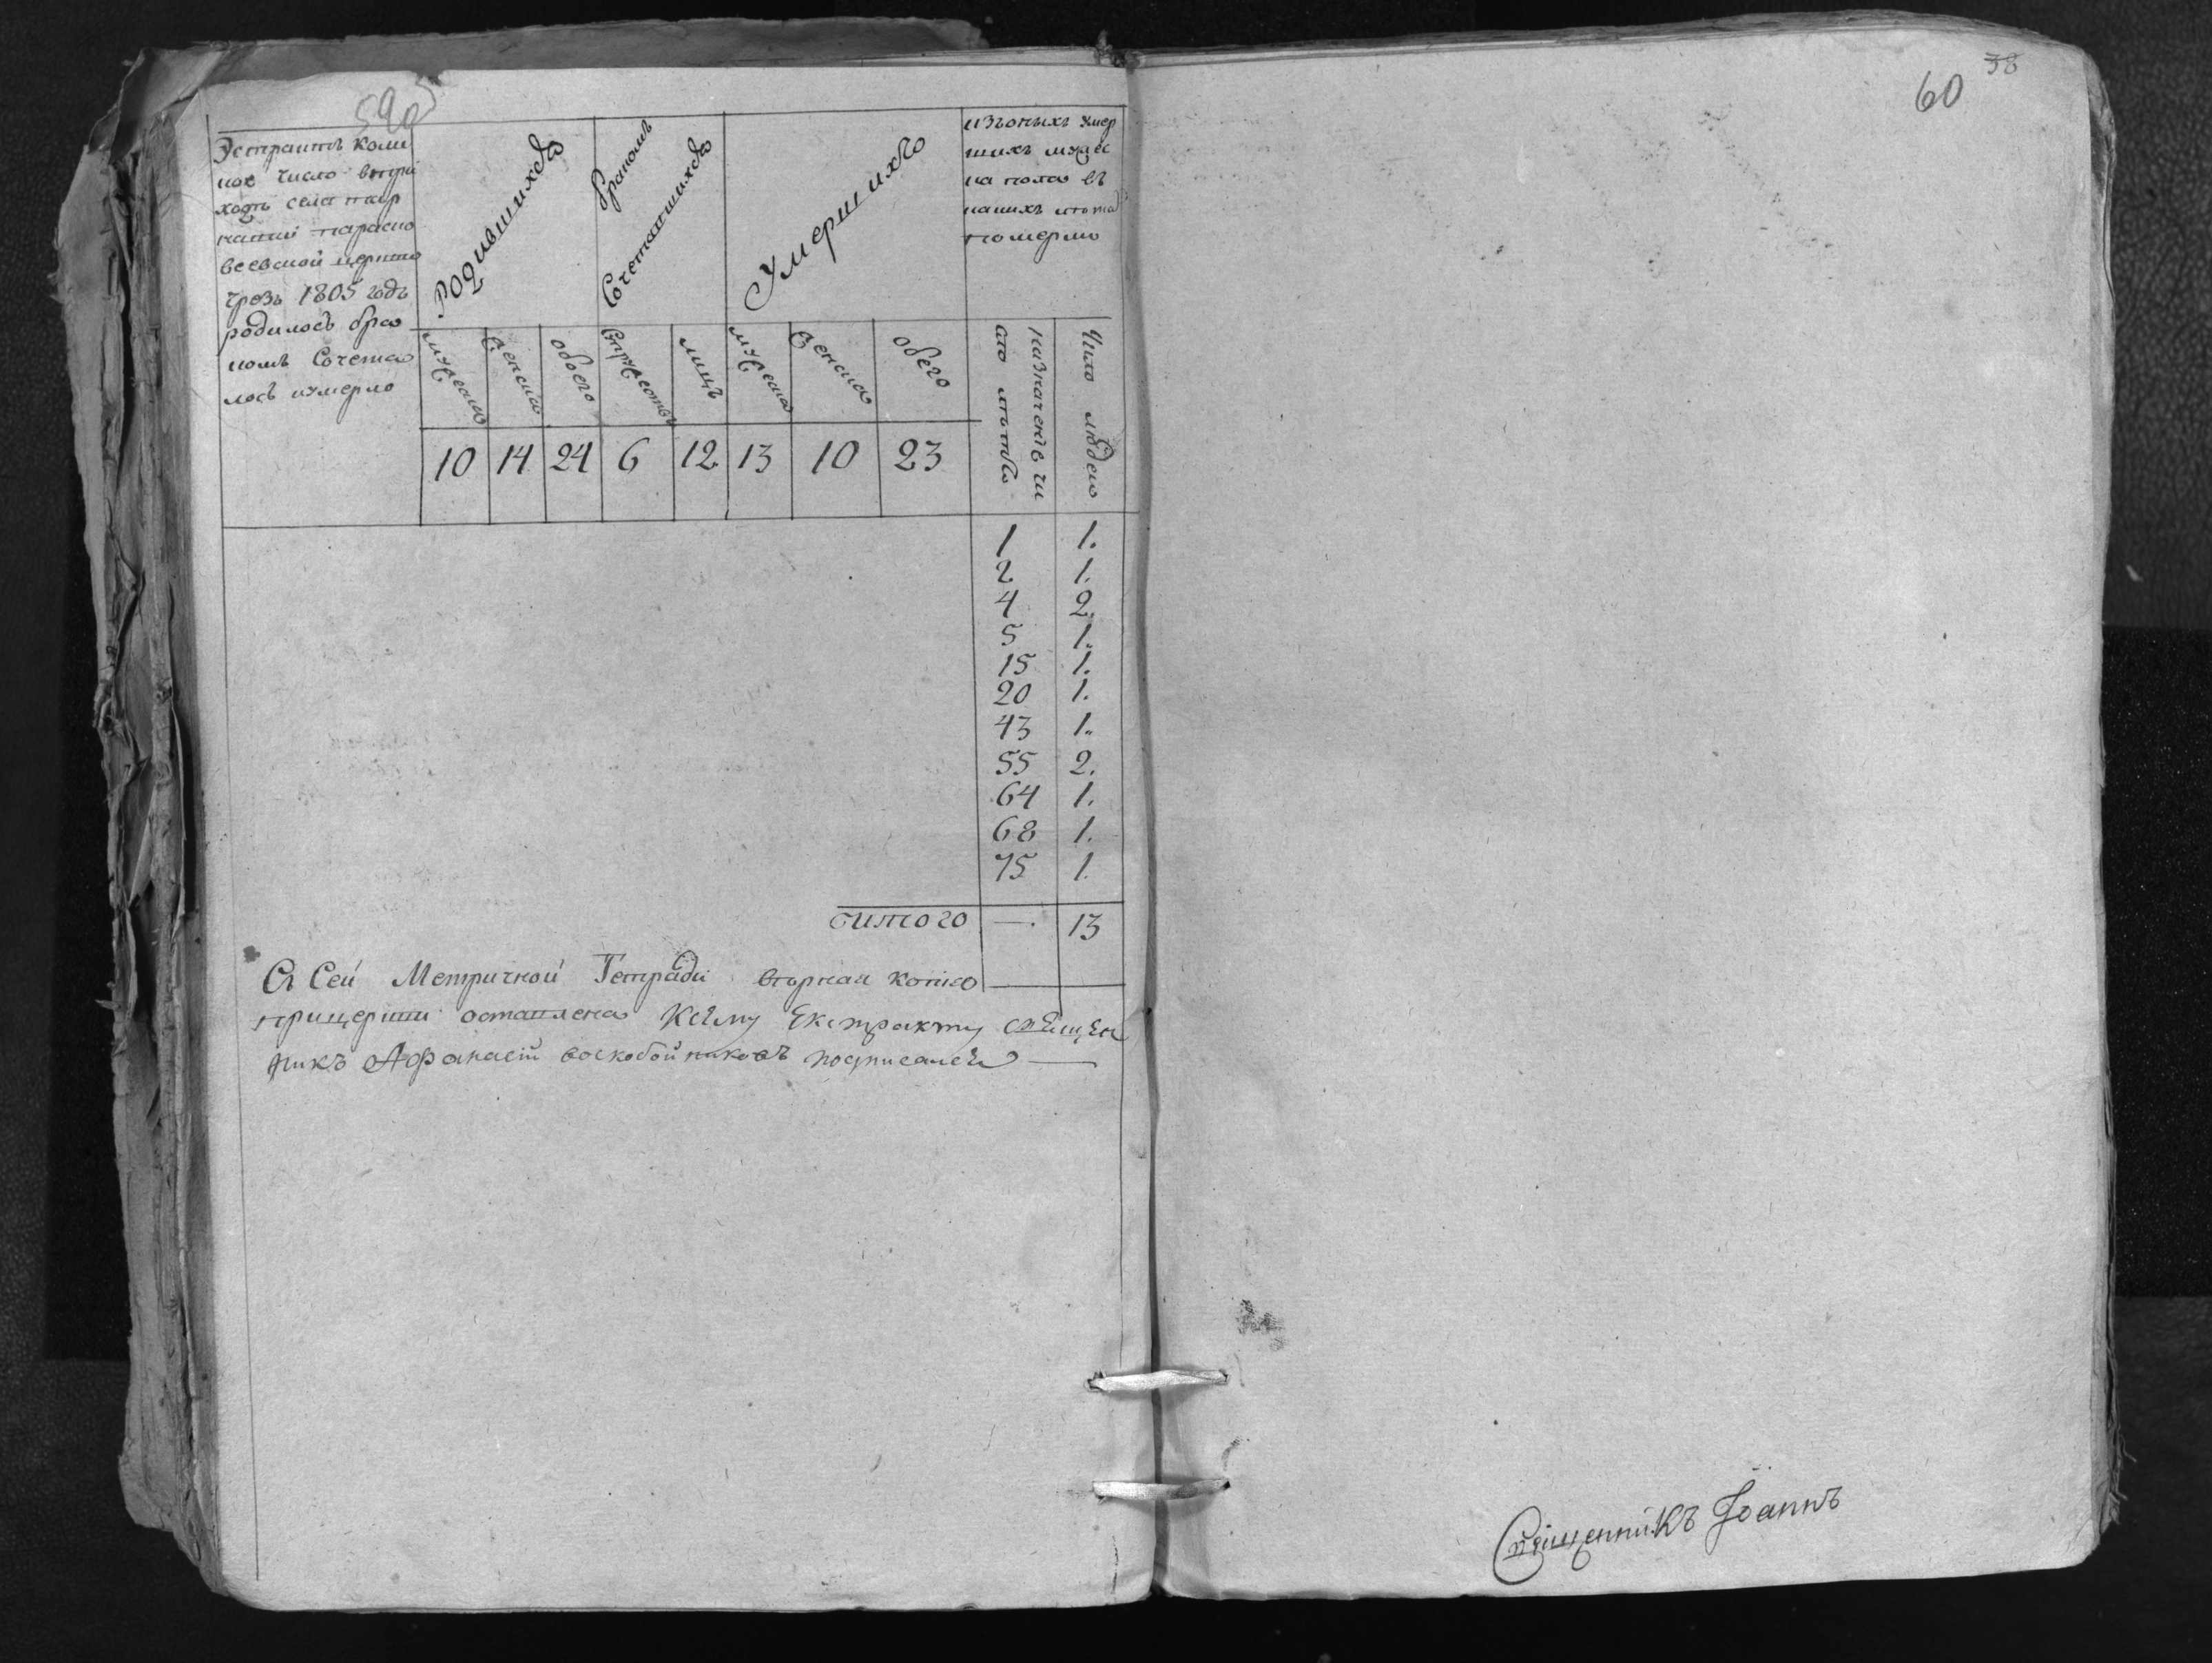 59об
Эстрактъ коли
кое число впри
ходѣ села
параско
веевской церкви
чрезъ 1805 годъ
родилось бра
комъ Сочета
лось иумерло
Родившихся
бракомъ
Сочетавшихся
Умершихъ
изъоныхъ умер
шихъ мужес
ка пола въ
какихъ лѣта
померли
мужеска
женска
обоего
Супружествъ
лицъ
мужеска
женска
обего
назначенїе чи
сло лѣтъ
Число людей
10 14 24 6 12 13 10 23
1 1.
2 1.
4 2.
5 1.
15 1.
20 1.
43 1.
55 2.
64 1.
68 1.
75 1.
итого —. 13
Съ Сей Метричной Тетради вторная копїя
прицеркви оставлена Ксему Екстракту священ
никъ Афанасїй воскобойниковъ подписался
60 38
Священникъ Іоаннъ